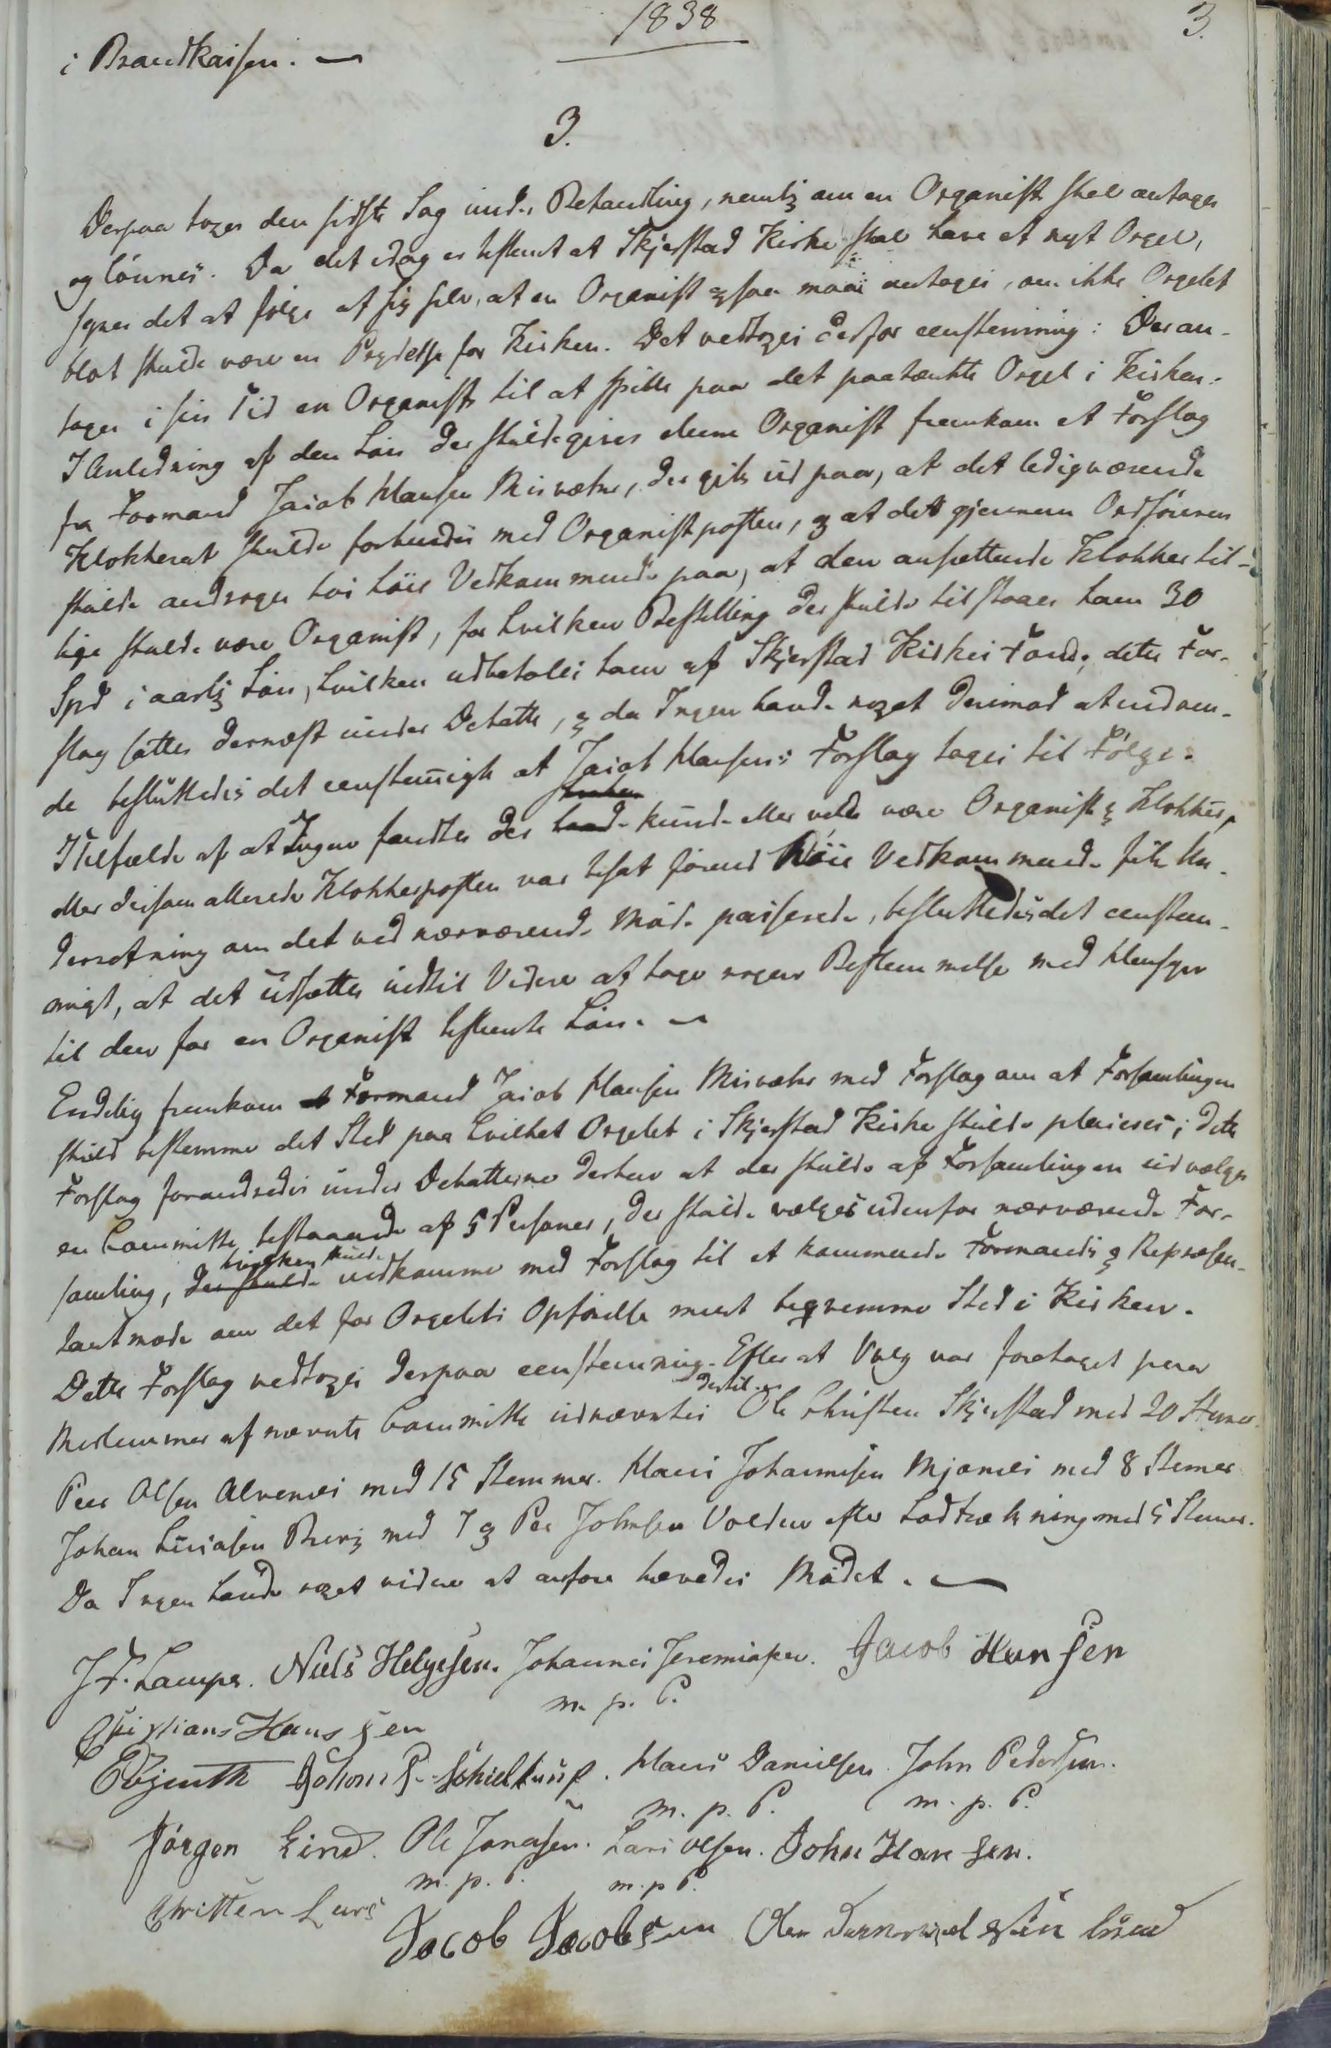 1838
3.
i Brandkassen. —
3.
Derpaa toges den sidste Sag under Behandling, nemlig om en Organist skal antages
og lønnes. Da det idag er bestemt at Skjerstad Kirke skal have et nyt Orgel,
synes det at følge af sig selv, at en Organist ogsaa maae antages, om ikke Orgelet
blot skulde være en Prydelse for Kirken. Det vedtoges derfor eenstemmig: Der an-
tages i sin Tid en Organist til at spille paa det paatænkte Orgel i Kirken.
I Anledning af den Løn der skulde gives denne Organist fremkom et Forslag
fra Formand Jacob Hansen Misvæhr, der gik ud paa, at det ledigværende
Klokkerat skulde forbindes med Organistposten, og at det gjennem Ordføreren
skulde andrages hos høie Vedkommende paa, at den ansættende Klokker til-
lige skulde være Organist, for hvilken Bestilling der skulde tilstaaes ham 30
Spd i aarlig Løn, hvilken udbetales ham af Skjerstad Kirkes Fond; dette For-
slag sattes dernæst under Debatte, og da Ingen havde noget derimod at indven-
de besluttedes det eenstemmigt at Jacob Hansens Forslag toges til Følge.
I Tilfælde af at Ingen fandtes der kunde eller vilde være Organist og Klokker,
eller dersom allerede Klokkerposten var besat førend Høie Vedkommende fik Un-
derretning om det ved nærværende Møde passerede, besluttedes det eenstem-
migt, at det udsættes indtil Videre at tage nogen Bestemmelse med Hensyn
til den for en Organist bestemte Løn. —
Endelig fremkom Formand Jacob Hansen Misvæhr med Forslag om at Forsamlingen
skuld bestemme det Sted paa hvilket Orgelet i Skjerstad Kirke skulde placeres; dette
Forslag forandredes under Debatterne derhen at der skulde af Forsamlingen udvælges
en Committe bestaaende af 5 Personer, der skulde vælges udenfor nærværende For-
samling, hvilken skulde indkomme med Forslag til et kommende Formands og Repræsen-
tantmøde om det for Orgelets Opførelse mest beqvemme Sted i Kirken.
Dette Forslag vedtoges derpaa eenstemmig. Efter at Valg var foretaget paa
Medlemmer af nævnte Committe udnævntes dertil Ole Christen Skjerstad med 20 Stemer.
Peer Olsen Alvenes med 15 Stemmer. Hans Johannesen Mjønes med 8 Stemer
Johan Lucasen Berg med 7 og Per Johnsen Volden efter Lodtrækning med 5 Stemer.
Da Ingen havde noget videre at anføre hævedes Mødet. —
J. F. Lampe. Niels Helgesen. Johannes Jeremiasen. Jacob Hansen
m. p. P.
Christians Hanssen
Johan P. Schieldrup. Hans Danielsen. John Pedersen.
m. p. P. m. p. P.
Jørgen Lind. Ole Jonasen. Lars Olsen. John Hansen.
m. p. P. m. p. P.
Christen Lars
Jacob Jacobsen Ole